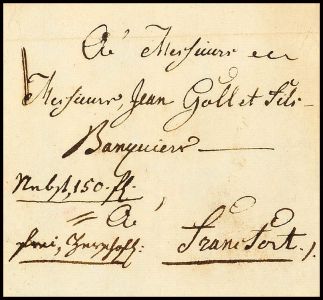 A' Messieurs
Messieurs, Jean Goll et Fils
Banquiers
Nebst, 150 fl.
A'
frei, Francfort.